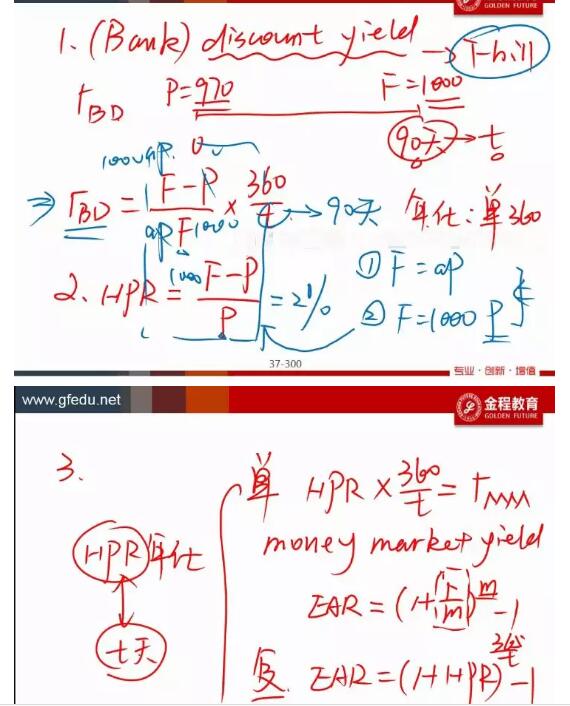 GOLDEN FUTURE
1. (Bank) discount yield → T-bill
rBD P=970 F=1000
90天 → t
⇒ rBD = F-P/F × 360/t → 90天 年化:单360
① F=aP
2. HPR = F-P/P = 2%
② F=1000 P
37-300
专业·创新·增值
www.gfedu.net
金程教育
GOLDEN FUTURE
3.
单 HPR × 360/t = rMM
money market yield
HPR 年化
EAR = (1+r/m)^m -1
t天
复 EAR = (1+HPR)^365/t -1